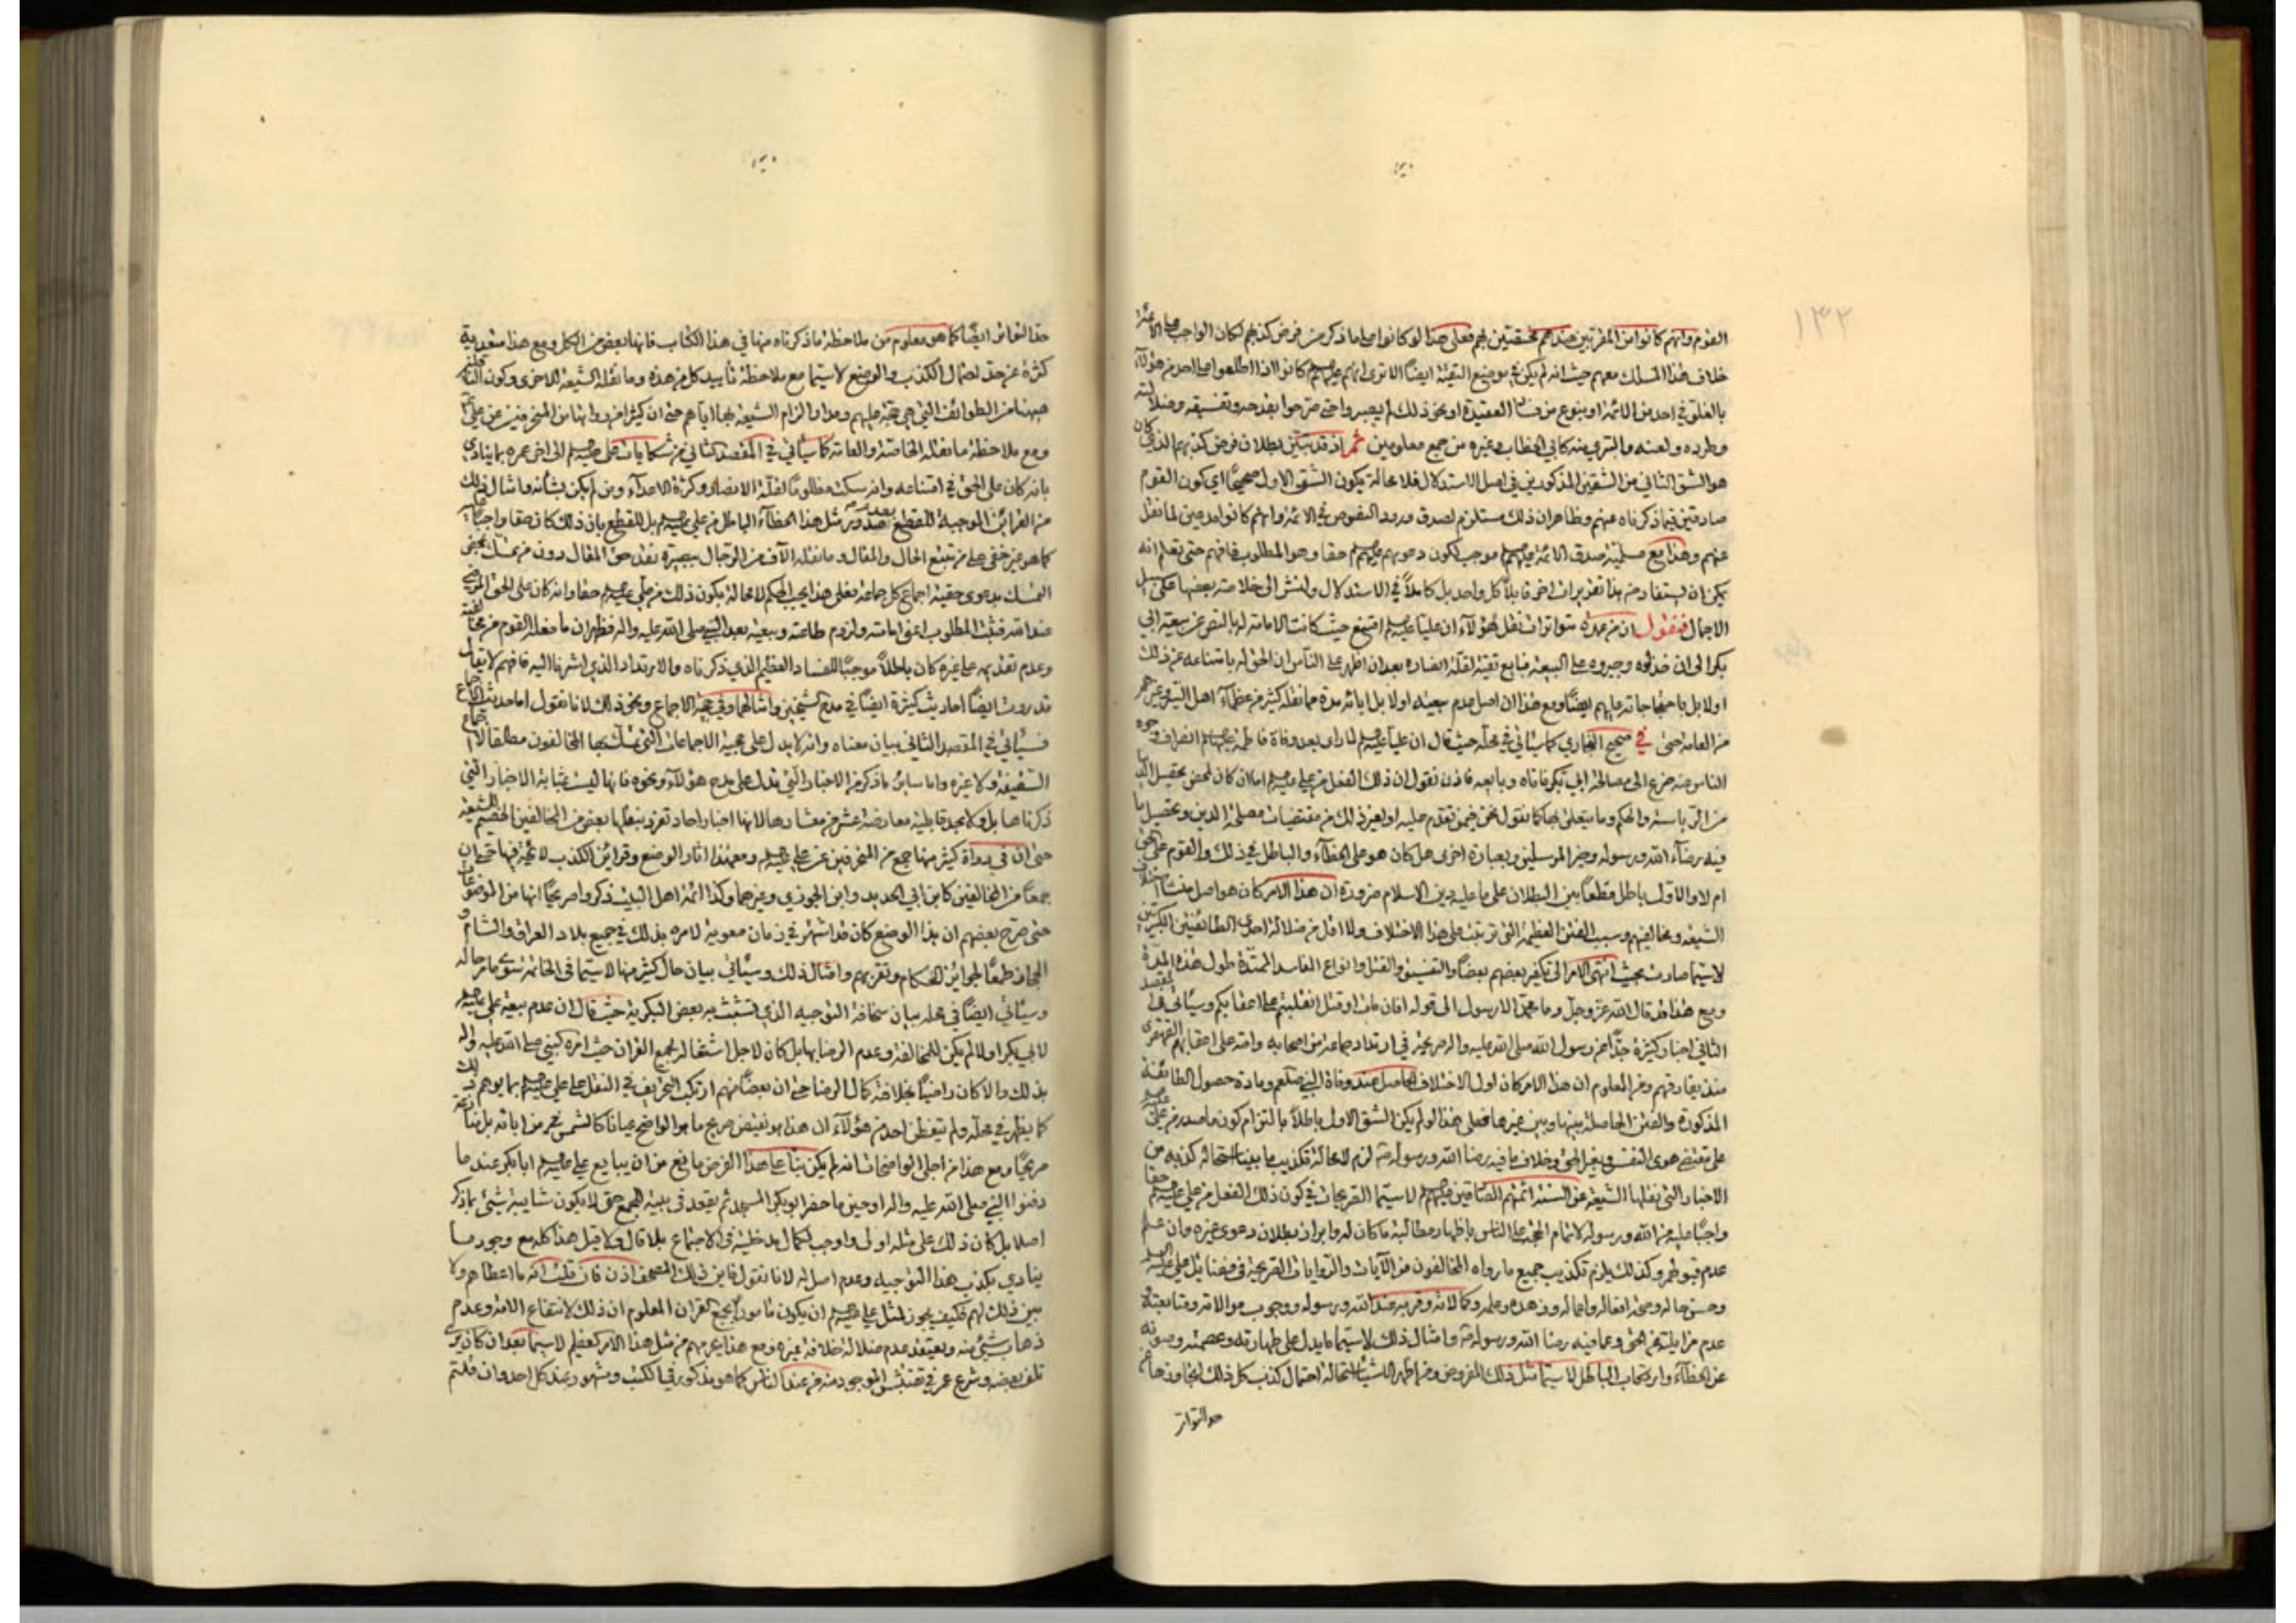 ١٣٢
القوم وانهم كانوا من المقربين عندهم محققين لهم فعلى هذا لو كانوا صلحاء ما ذكر من فرض كذبهم لكان الواجب على الائمة
خلاف هذا المسلك معهم حيث انه لم يكن في موضع التقية ايضا الا ترى انهم عليهم كانوا اذا اطلعوا على احد من هؤلاء
بالغلو في احد من الائمة او بنوع من فساد العقيدة او نحو ذلك لم يصبروا حتى صرحوا بقدحه وتفسيقه وضلالته
وطرده ولعنه والتبري منه كابي الخطاب وغيره من جمع معلومين ثم اذ قد تبين بطلان فرض كذبهم الذي كان
هو الشق الثاني من الشقين المذكورين في اصل الاستدلال فلا محالة يكون الشق الاول صحيحا اي كون القوم
صادقين فيما ذكرناه عنهم وظاهر ان ذلك مستلزم لصدق ورود النصوص في الائمة وانهم كانوا مدعين لما نقل
عنهم وهذا مع مسلمية صدق الائمة عليهم موجب لكون دعويهم عليهم حقا وهو المطلوب فافهم حتى تعلم انه
يمكن ان يستفاد من هذا تقريرات اخر قابلا كل واحد بل كاملا في الاستدلال ولنشر الى خلاصة بعضها على سبيل
الاجمال فنقول ان من عمدة متواترات نقل هؤلاء ان عليا عليه امتنع حيث كانت الامامة له بالنص عن بيعة ابي
بكر الى ان قدلوه وجبروه على البيعة فبايع تقية لقلة انصاره بعد ان اظهر على الناس ان الحق له بامتناعه عن ذلك
اولا بل باحتجاجاته عليهم ايضا ومع هذا ان اصل عدم بيعته اولا بل ابائه مدة مما نقله كثير من عظماء اهل السير وغيرهم
من العامة حتى في صحيح البخاري كما سيأتي في محله حيث قال ان عليا عليه لما راى بعد وفاة فاطمة عليها انصراف وجوه
الناس عنه ضرع الى مصالحة ابي بكر فاتاه وبايعه فاذن نقول ان ذلك الفعل من علي عليه اما لان كان لمحض تحصيل الدنيا
من الرياسة والحكم وما يتعلق بها كما نقول نحن فيمن تقدم عليه او لغير ذلك من مقتضيات مصلحة الدين وتحصيل ما
فيه رضاء الله ورسوله وخير المرسلين وبعبارة اخرى هل كان هو على الخطاء والباطل في ذلك والقوم على الحق
ام لا والاول باطل قطعا بين البطلان على ما عليه دين الاسلام ضرورة ان هذا الامر كان هو اصل منشأ اختلاف
الشيعة ومخالفيهم وسبب الفتن العظيمة التي ترتبت على هذا الاختلاف ولا اقل من ضلالة احدى الطائفتين الكبيرتين
لا سيما صارت بحيث انتهى الامر الى تكفير بعضهم بعضا والتفسيق والقتل وانواع المفاسد الممتدة طول هذه المدة
ومع هذا قد قال الله عز وجل وما محمد الا رسول الى قوله افان مات او قتل انقلبتم على اعقابكم وسيأتي في المقصد
الثاني اخبار كثيرة جدا عن رسول الله صلى الله عليه واله صريحة في ارتداد جماعة من اصحابه وامته على اعقابهم القهقرى
منذ يفارقهم ومن المعلوم ان هذا الامر كان اول الاختلاف الحاصل عند وفاة النبي صلعم ومادة حصول الطائفة
المذكورة والفتن الحاصلة بينها وبين غيرها فعلى هذا لو لم يكن الشق الاول باطلا بالتزام كون ما صدر من علي عليه
على مقتضى هوى النفس وبغير الحق وخلاف ما فيه رضا الله ورسوله لزم لا محالة تكذيب ما بينا استحالة كذبه من
الاخبار التي نقلها الشيعة عن السنة ائمتهم الصادقين عليهم لا سيما الصريحات في كون ذلك الفعل من علي عليه حقا
واجبا عليه من الله ورسوله لاتمام الحجة على الناس باظهار مطالبة ما كان له وابراز بطلان دعوى غيره وان علم
عدم قبولهم وكذلك يلزم تكذيب جميع ما رواه المخالفون من الآيات والروايات الصريحة في فضائل علي عليه السلم
وحسن حاله وصحة افعاله واعماله وزهده وعلمه وكمالاته وقربه عند الله ورسوله ووجوب موالاته ومتابعته و
عدم مزايلته عن الحق وعما فيه رضا الله ورسوله وامثال ذلك لا سيما ما يدل على طهارته وعصمته وصونه
عن الخطاء وارتكاب الباطل لا سيما مثل ذلك المفروض ومن اظهر الاشياء استحالة احتمال كذب كل ذلك لتجاوزها عن
حد التواتر
حد التواتر ايضا كما هو معلوم من ملاحظة ما ذكرناه منها في هذا الكتاب فانها بعض من الكل ومع هذا متعدية
كثرة عن حد احتمال الكذب والوضع لا سيما مع ملاحظة تأييد كل من هذه وما نقله الشيعة للاخرى وكون الناقلين
ههنا من الطوائف التي هي حجة عليهم ومدار الزام الشيعة بها اياهم حتى ان كثيرا من رواتها من المنحرفين عن علي
ومع ملاحظة ما نقله الخاصة والعامة كما سيأتي في المقصد الثاني من شكايات علي عليه الى اخر عمره بما ينادي
بانه كان على الحق في امتناعه وانه سكت مظلوما لقلة الانصار وكثرة الاعداء ومن لم يكن بشأنه وامثال ذلك
من القرائن الموجبة للقطع بعدم صدور مثل هذا الخطاء الباطل من علي عليه بل للقطع بان ذلك كان حقا واجبا عليه
كما هو غير خفي على من تتبع الحال والمقال وما نقله الآف من الرجال ببصيرة نقد حق المقال دون من تمسك بمحض
التمسك بدعوى حقية اجماع كل جماعة فعلى هذا يجب الحكم لا محالة بكون ذلك من علي عليه حقا وانه كان على الحق المرضي
عند الله فثبت المطلوب اعني امامته ولزوم طاعته وبيعته بعد النبي صلى الله عليه واله فظهر ان ما فعله القوم من مخالفته
وعدم تقديمه على غيره كان باطلا وموجبا للفساد العظيم الذي ذكرناه والارتداد الذي اشرنا اليه فافهم لا يقال
قد روت ايضا احاديث كثيرة ايضا في مدح الشيخين وامثالهما وفي حجية الاجماع ونحو ذلك لانا نقول اما حديث الاجماع
فسيأتي في المقصد الثاني بيان معناه وانه لا يدل على حجية الاجماعات التي تمسك بها المخالفون مطلقا لا اجماع
السقيفة ولا غيره واما سائر ما ذكر من الاخبار التي تدل على مدح هؤلاء ونحوه فانها ليست بمثابة الاخبار التي
ذكرناها بل ولا بحد قابلية معارضة عشر من معشارها لانها اخبار احاد تفرد بنقلها بعض من المخالفين الخصيم للشيعة
حتى ان في رواة كثير منها جمع من المنحرفين عن علي عليه ومعهذا اثار الوضع وقرائن الكذب لائحة فيها حتى ان
جمعا من المخالفين كابن ابي الحديد وابن الجوزي وغيرهما وكذا ائمة اهل البيت ذكروا صريحا انها من الموضوعات
حتى صرح بعضهم ان هذا الوضع كان قد اشتهر في زمان معوية لامره بذلك في جميع بلاد العراق والشام و
الحجاز طمعا لجوائز الحكام وتقربهم وامثال ذلك وسيأتي بيان حال كثير منها لا سيما في الخاتمة سوى ما مر حاله
وسيأتي ايضا في محله بيان سخافة التوجيه الذي تشبث به بعض البكرية حيث قال ان عدم بيعة علي عليه
لابي بكر اولا لم يكن للمخالفة وعدم الرضا بها بل كان لاجل اشتغاله بجمع القران حيث امره النبي صلى الله عليه واله
بذلك والا كان راضيا بخلافته كمال الرضا حتى ان بعضا منهم ارتكب التحريف في النقل على علي عليه بما يوهم ذلك
كما يظهر في محله ولم يتفطن احد من هؤلاء ان هذا هو نقيض صريح ما هو الواضح عيانا كالشمس من اباته بل
صريحا ومع هذا من اجلى الواضحات انه لم يكن بناء على هذا الفرض مانع من ان يبايع علي عليه ابا بكر عند ما
دفنوا النبي صلى الله عليه واله او حين ما حضر ابو بكر المسجد ثم يقعد في بيته للجمع حتى لا يكون شايبة شيئ مما ذكر
اصلا بل كان ذلك على مثله اولى واوجب لكمال مدخليته في الاجتماع بلا قال ولا قيل هذا كله مع وجود ما
ينادي بكذب هذا التوجيه وعدم اصل له لانا نقول فاين ذلك المصحف اذن فان قلت انه ما اعطاهم ولا
بين ذلك لهم فكيف يجوز لمثل علي عليه ان يكون مأمورا بجمع القران المعلوم ان ذلك لانتفاع الامة وعدم
ذهاب شيئ منه ويعتقد عدم ضلالة خلافة غيره ومع هذا يحرمهم من مثل هذا الامر العظيم لا سيما بعد ان كان يرى
تلف بعضه وشرع عمر في تفتيش الموجود منه من عند الناس كما هو مذكور في الكتب ومشهود عند كل احد وان قلتم